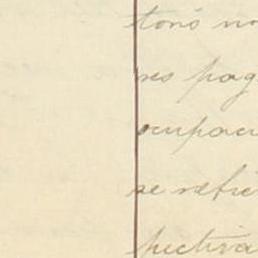 tons no
res pag
ocupaci
se refie
pectiva